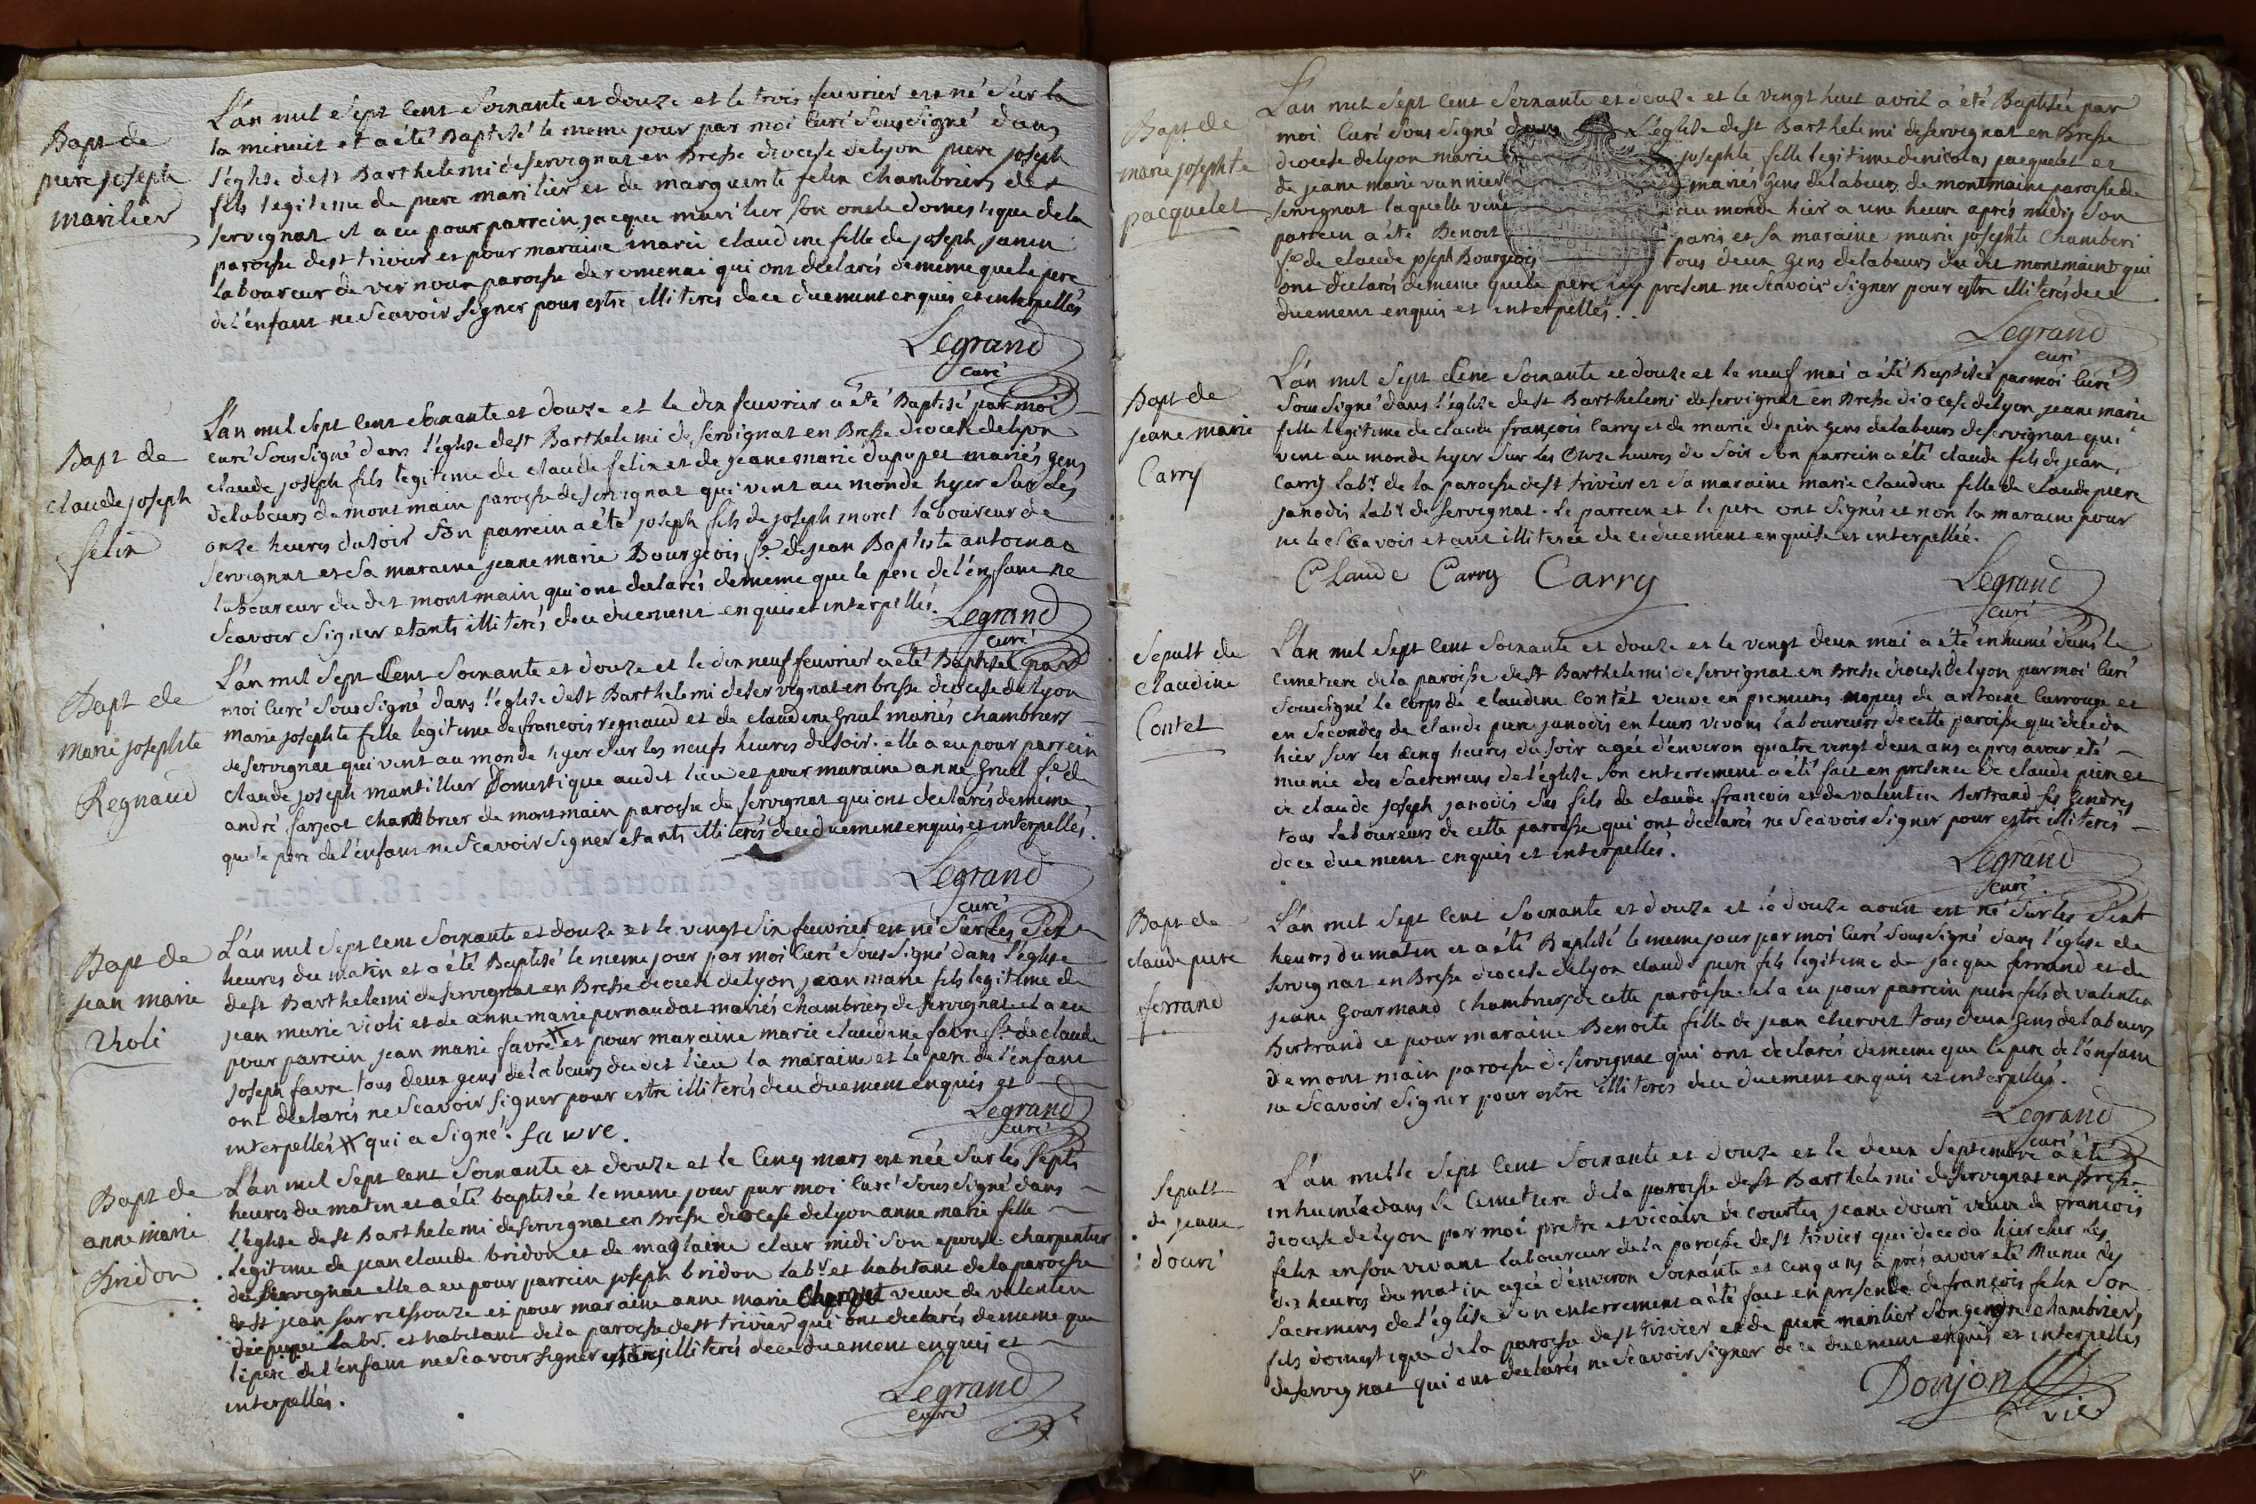 Bapt de
piere joseph
marilier
L'an mil sept cent soixante et douze et le trois feuvrier est né sur la
la minuit et a été Baptisé le meme jour par moi curé sous signé dans
l'église de st Barthelemi de servignat en Bresse diocese de lyon piere joseph
fils legitime de piere marilier et de marguerite felix chambriers de
servignat il a eu pour parrein jacque marilier son oncle domestique de la
paroisse de st trivier et pour maraine marie claudine fille de joseph janin
laboureur de vernoux paroisse de romenai qui ont declarés de meme que le pere
de l'enfant ne scavoir signer pour estre illiterés de ce duement enquis et interpellés
Legrand
curé
Bapt de
claude joseph
felix
L'an mil sept cent soixante et douze et le dix feuvrier a été Baptisé par moi
curé sous signé dans l'église de st Barthelemi de servignat en Bresse diocese de lyon
claude joseph fils legitime de claude felix et de jeane marie dupupet mariés gens
de labeurs de mont main paroisse de servignat qui vint au monde hyer sur les
onze heures du soir son parrein a été joseph fils de joseph morel laboureur de
servignat et sa maraine jeane marie Bourgeois fe de jean Baptiste
laboureur du dit mont main qui ont declarés de meme que le pere de l'enfant ne
scavoir signer etants illiterés de ce duement enquis et interpellés.
Legrand
curé
Bapt de
marie josephte
Regnaud
L'an mil sept cent soixante et douze et le dix neuf feuvrier a été Baptisée par
moi curé sous signé dans l'église de st Barthelemi de servignat en bresse diocese de lyon
marie josephte fille legitime de francois regnaud et de claudine gruel mariés chambriers
de servignat qui vint au monde hyer sur les neufs heures du soir. elle a eu pour parrein
claude joseph mantillier Domestique au dit lieu et pour maraine anne gruel fe de
andré farjeot chambrier de mont main paroisse de servignat qui ont declarés de meme
que le pere de l'enfant ne scavoir signer etants illiterés de ce duement enquis et interpellés.
Legrand
curé
Bapt de
jean marie
Violi
L'an mil sept cent soixante et douze et le vingt six feuvrier est né sur les dix
heures du matin et a été Baptisé le meme jour par moi curé sous signé dans l'église
de st Barthelemi de servignat en Bresse diocese de lyon jean marie fils legitime de
jean marie violi et de anne marie pernaudat mariés chambriers de servignat il a eu
pour parrein jean marie favre # et pour maraine marie claudine favre fe de claude
joseph favre tous deux gens de labeurs du dit lieu la maraine et le pere de l'enfant
ont declarés ne scavoir signer pour estre illiterés de ce duement enquis et
interpellés # qui a signé. favre.
Legrand
curé
Bapt de
anne marie
Bridon
L'an mil sept cent soixante et douze et le cinq mars est née sur les septs
heures du matin et a été baptisée le meme jour par moi curé sous signé dans
l'église de st Barthelemi de servignat en Bresse diocese de lyon anne marie fille
legitime de jean claude bridon et de maglaine clair midi son epouse charpentier
de servignat elle a eu pour parrein joseph bridon labr et habitant de la paroisse
de st jean sur reissouze et pour maraine anne marie Chervet veuve de valentin
labr. et habitant de la paroisse de st trivier qui ont declarés de meme que
le pere de l'enfant ne scavoir signer etants illiterés de ce duement enquis et
interpellés.
Legrand
curé
Bapt de
marie josephte
pacquelet
L'an mil sept cent soixante et douze et le vingt huit avril a été Baptisée par
moi curé sous signé dans l'église de st Barthelemi de servignat en Bresse
diocese de lyon marie josephte fille legitime de nicolas pacquelet et
de jeane marie vannier mariés gens de labeurs de montmain paroisse de
servignat laquelle vint au monde hier a une heure aprés midi, son
parrein a été Benoit paris et sa maraine marie josephte Chamberi
fe de claude joseph Bourgeois tous deux gens de labeurs du dit montmain qui
ont declarés de meme que le pere ici present ne scavoir signer pour estre illiterés de ce
duement enquis et interpellés.
Legrand
curé
Bapt de
jeane marie
Carry
L'an mil sept cent soixante et douze et le neuf mai a été Baptisée par moi curé
sous signé dans l'église de st Barthelemi de servignat en Bresse diocese de lyon jeane marie
fille legitime de claude françois carry et de marie depin gens de labeurs de servignat qui
vint au monde hyer sur les onze heures du soir son parrein a été claude fils de jean
carry labr de la paroisse de st trivier et sa maraine marie claudine fille de claude piere
janodis labr de servignat. le parrein et le pere ont signés et non la maraine pour
ne le scavoir etant illiterée de ce duement enquise et interpellée.
Claude Carry Carry
Legrand
curé
Sepult de
claudine
Contet
L'an mil sept cent soixante et douze et le vingt deux mai a été inhumé dans le
cimetiere de la paroisse de st Barthelemi de servignat en Bresse diocese de lyon par moi curé
sous signé le corps de claudine contét veuve en premieres nopces de antoine carrouge et
en secondes de claude piere janodis en leurs vivans laboureurs de cette paroisse qui deceda
hier sur les cinq heures du soir agée d'environ quatre vingt deux ans apres avoir été
munie des sacremens de l'église son enterrement a été fait en presence de claude piere et
de claude joseph janodis ses fils de claude francois et de valentin Bertrand ses gendres
tous laboureurs de cette paroisse qui ont declarés ne scavoir signer pour estre illiterés
de ce duement enquis et interpellés.
Legrand
curé
Bapt de
claude piere
ferrand
L'an mil sept cent soixante et douze et le douze aoust est né sur les
heures du matin et a été Baptisé le meme jour par moi curé sous signé dans l'église de
servignat en Bresse diocese de lyon claude piere fils legitime de jacque ferrand et de
jeane Gourmand chambriers de cette paroisse. il a eu pour parrein piere fils de valentin
Bertrand et pour maraine Benoite fille de jean chervet tous deux gens de labeurs
de mont main paroisse de servignat qui ont declarés de meme que le pere de l'enfant
ne scavoir signer pour estre illiterés de ce duement enquis et interpellés.
Legrand
curé
Sepult
de jeane
douri
L'an mille sept cent soixante et douze et le deux septembre a été
inhumée dans le cimetiere de la paroisse de st Barthelemi de servignat en Bresse
diocese de lyon par moi pretre et vicaire de courtes jeane douri veuve de francois
felix en son vivant laboureur de la paroisse de st trivier qui deceda hier sur les
dix heures du matin agée d'environ soixante et cinq ans aprés avoir été munie des
sacremens de l'église son enterrement a été fait en presence de francois felix son
fils domestique de la paroisse de st trivier et de piere marilier son gendre chambrier
de servignat qui ont declarés ne scavoir signer de ce duement enquis et interpellés
Donjon
vic